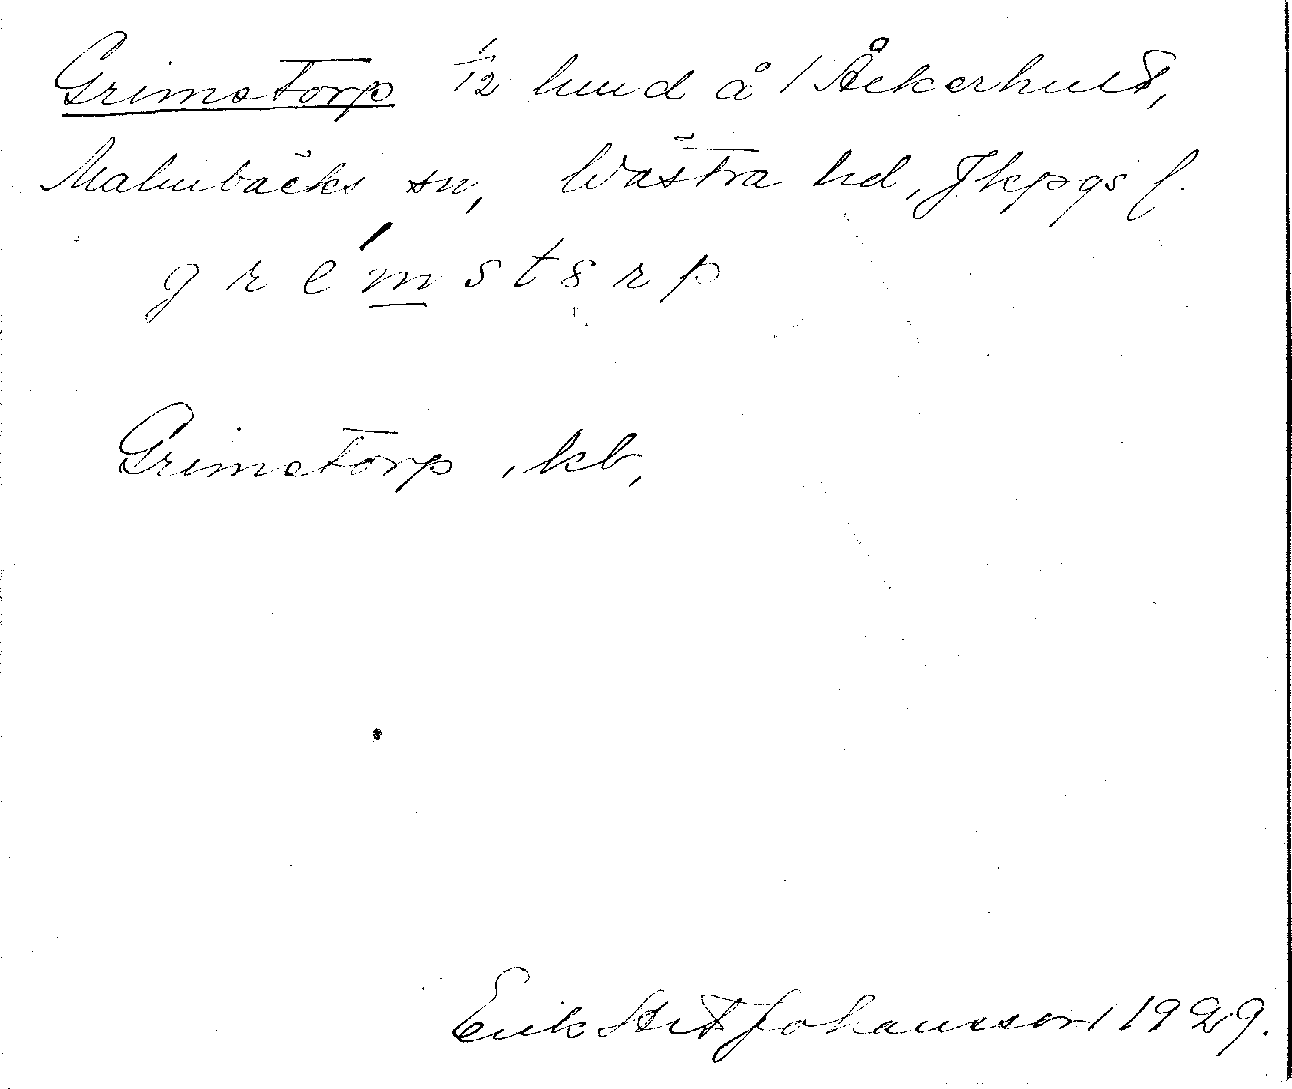 Grimstorp 1/12 lund å / Åkerhult,
Malmbäcks sn, Västra hd, Jkpgs l.
gre´mstsrp
Grimstorp, kb,
Erik Johansson 1929.